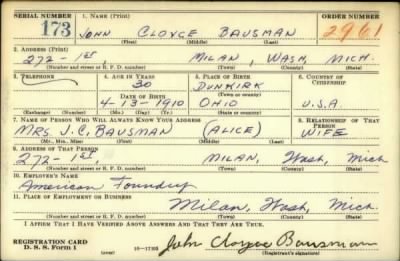 SERIAL NUMBER 1. NAME (Print) ORDER NUMBER
173 JOHN CLOYGE BAUSMAN 2961
(First) (Middle) (Last)
2. ADDRESS (Print)
272-1st MILAN, WASH, MICH.
(Number and street or R. F. D. number) (Town) (County) (State)
3. TELEPHONE 4. AGE IN YEARS 5. PLACE OF BIRTH 6. COUNTRY OF CITIZENSHIP
30 DUNKIRK
DATE OF BIRTH (Town or county)
4-13-1910 OHIO U.S.A.
(Exchange) (Number) (Mo.) (Day) (Yr.) (State or country)
7. NAME OF PERSON WHO WILL ALWAYS KNOW YOUR ADDRESS 8. RELATIONSHIP OF THAT PERSON
MRS. J.C. BAUSMAN (ALICE) WIFE
(Mr., Mrs., Miss) (First) (Middle) (Last)
9. ADDRESS OF THAT PERSON
272-1st, MILAN, Wash, Mich
(Number and street or R. F. D. number) (Town) (County) (State)
10. EMPLOYER'S NAME
American Foundry
11. PLACE OF EMPLOYMENT OR BUSINESS
Milan, Wash, Mich.
(Number and street or R. F. D. number) (Town) (County) (State)
I AFFIRM THAT I HAVE VERIFIED ABOVE ANSWERS AND THAT THEY ARE TRUE.
REGISTRATION CARD
D. S. S. Form 1 16-17105 John Cloyge Bausman
(over) (Registrant's signature)